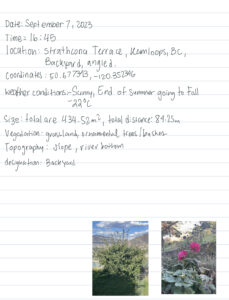 Date: September 7, 2023
Time = 16:45
location: Strathcona Terrace, Kamloops, BC,
Backyard, angled.
Coordinates: 50.677343, -120.352346
weather conditions:- Sunny, End of summer going to Fall
~22°C
Size: total are 434.52m², total distance: 84.25m
Vegetation: grassland, ornamental, trees/bushes
Topography: slope, river bottom
designation: Backyard